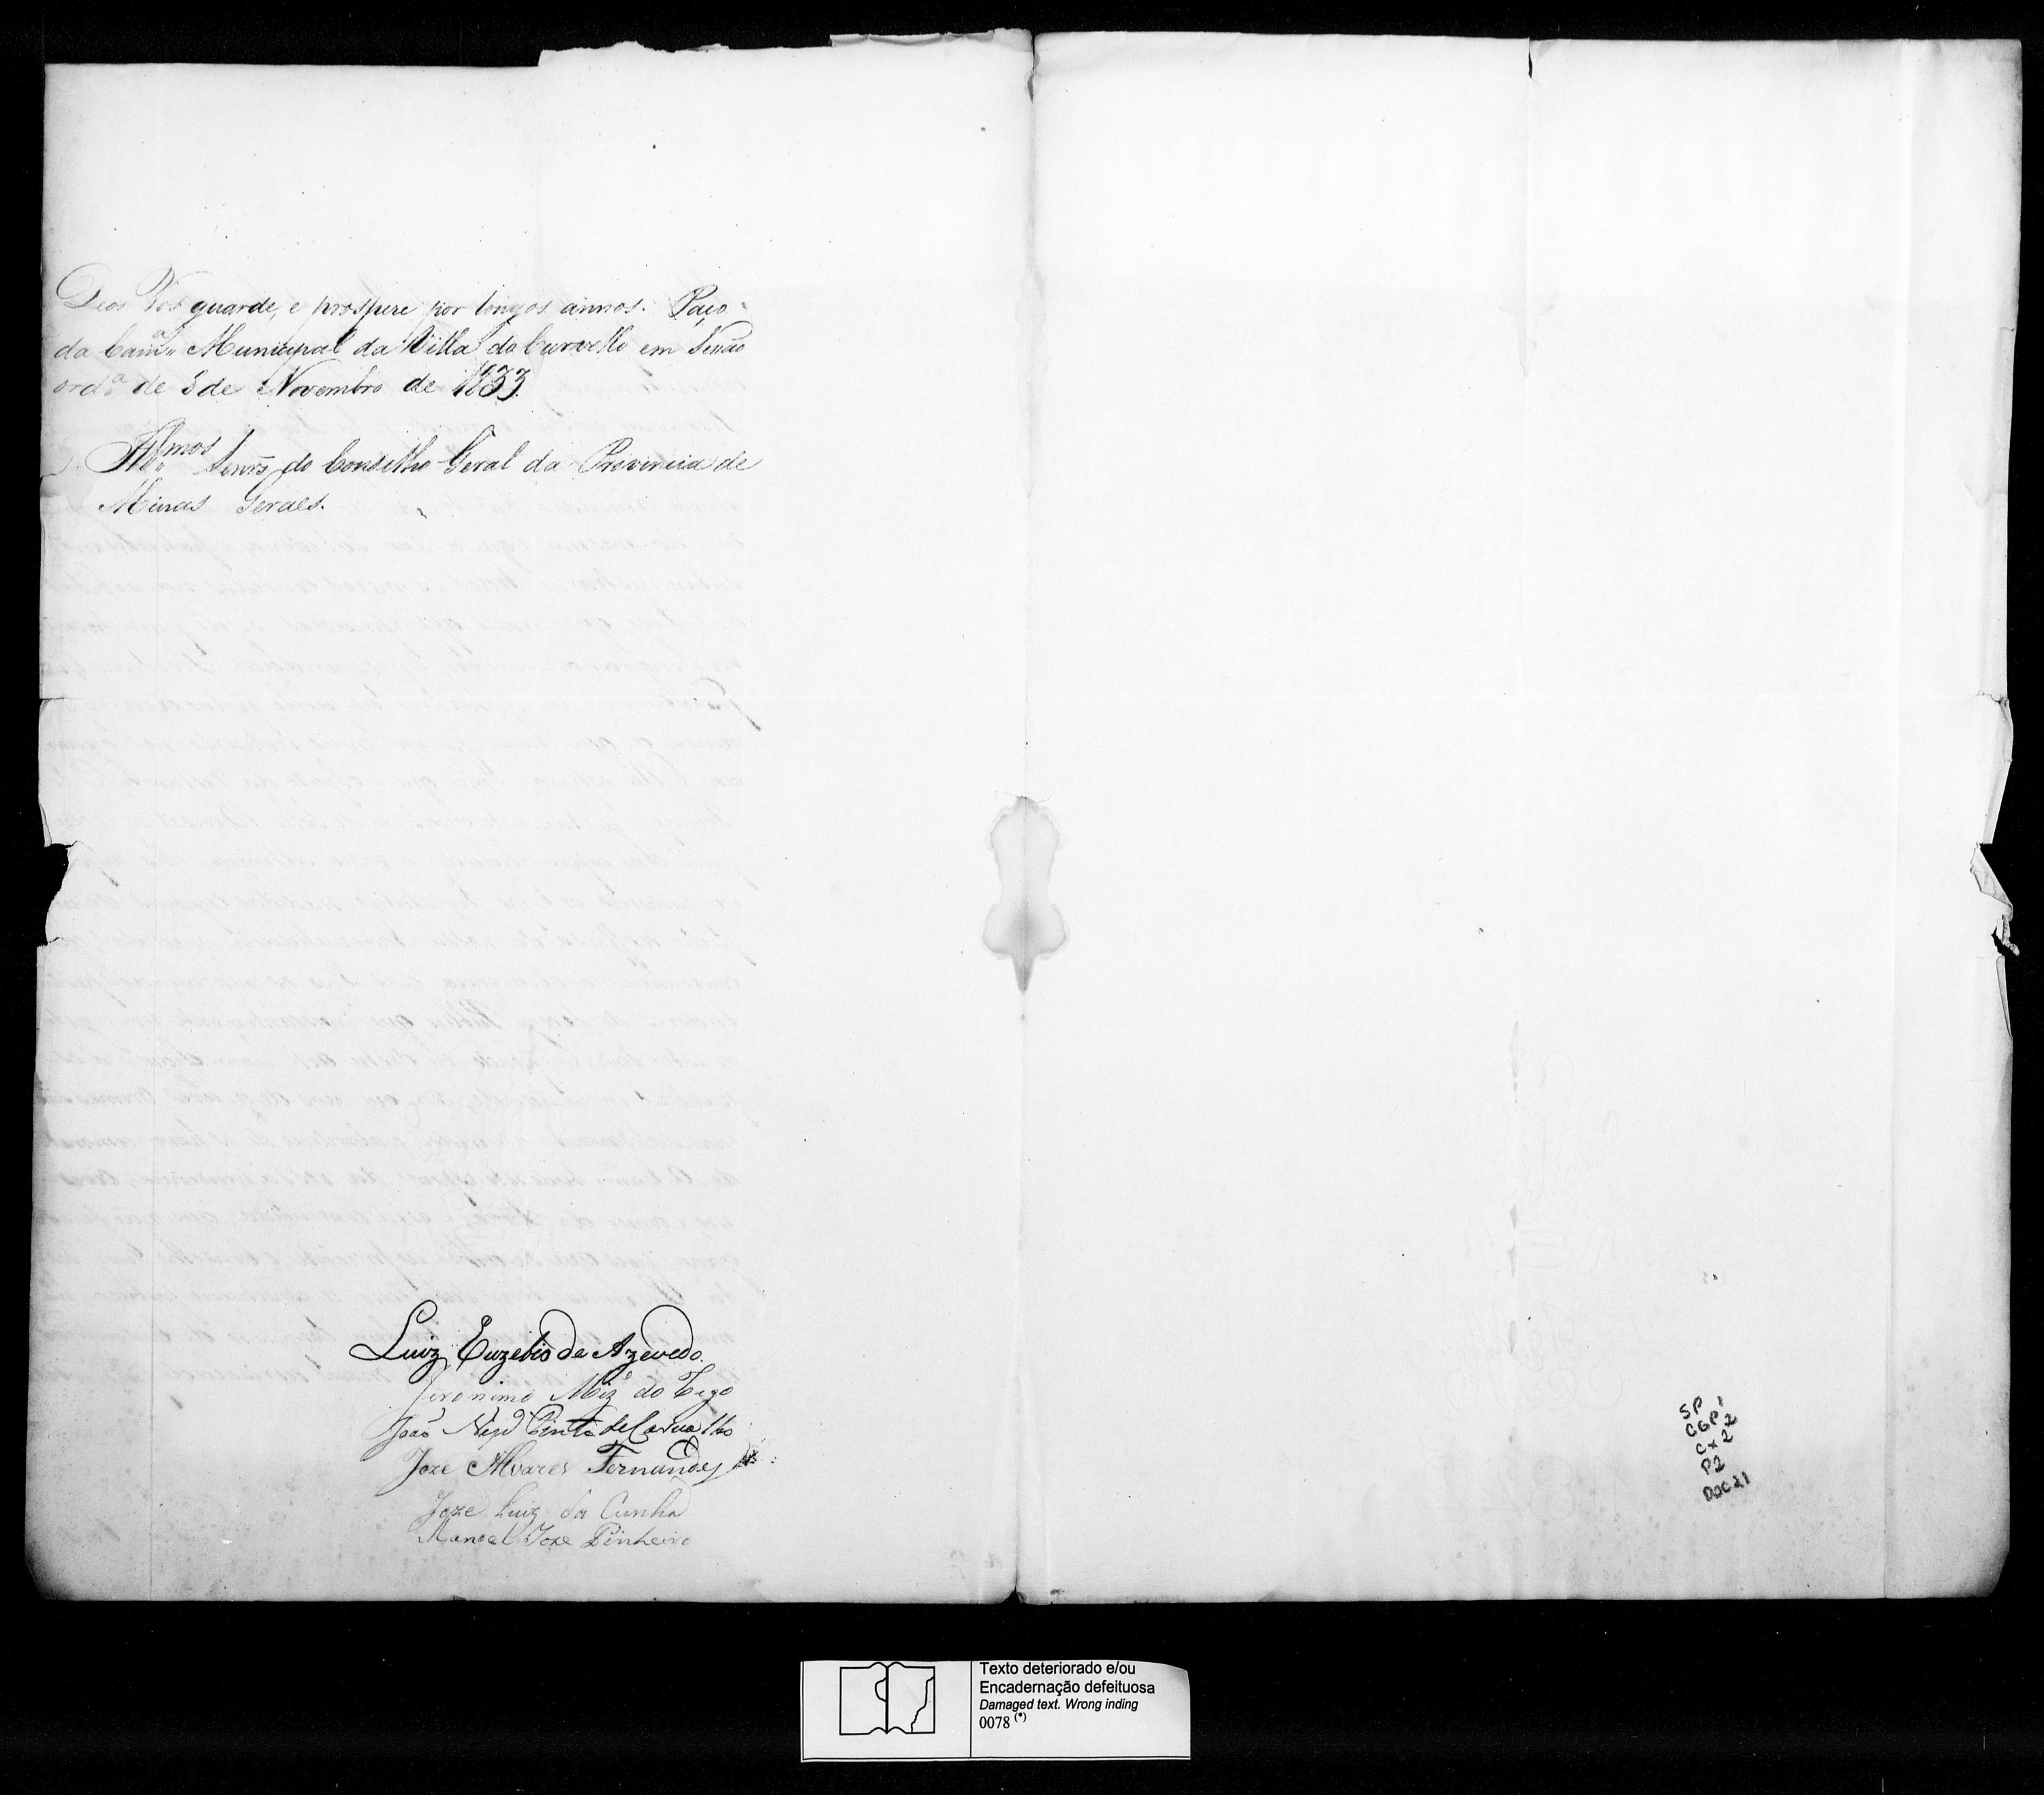 Deos Vos guarde, e prospere por longos annos. Paço
da Camª Municipal da Villa do Curvello em Sessão
ordª de 5 de Novembro de 1833.
Illmos Senrs do Conselho Geral da Provincia de
Minas Geraes.
Luiz Euzebio de Azevedo.
Jeronimo Miz do Rego
João Nepo Pinto de Carvalho
Joze Alvares Fernandes
Joze Luiz da Cunha
Manoel Joze Pinheiro
SP
CGP1
Cx 2
P2
DOC 21
Texto deteriorado e/ou
Encadernação defeituosa
Damaged text. Wrong inding
0078 (*)